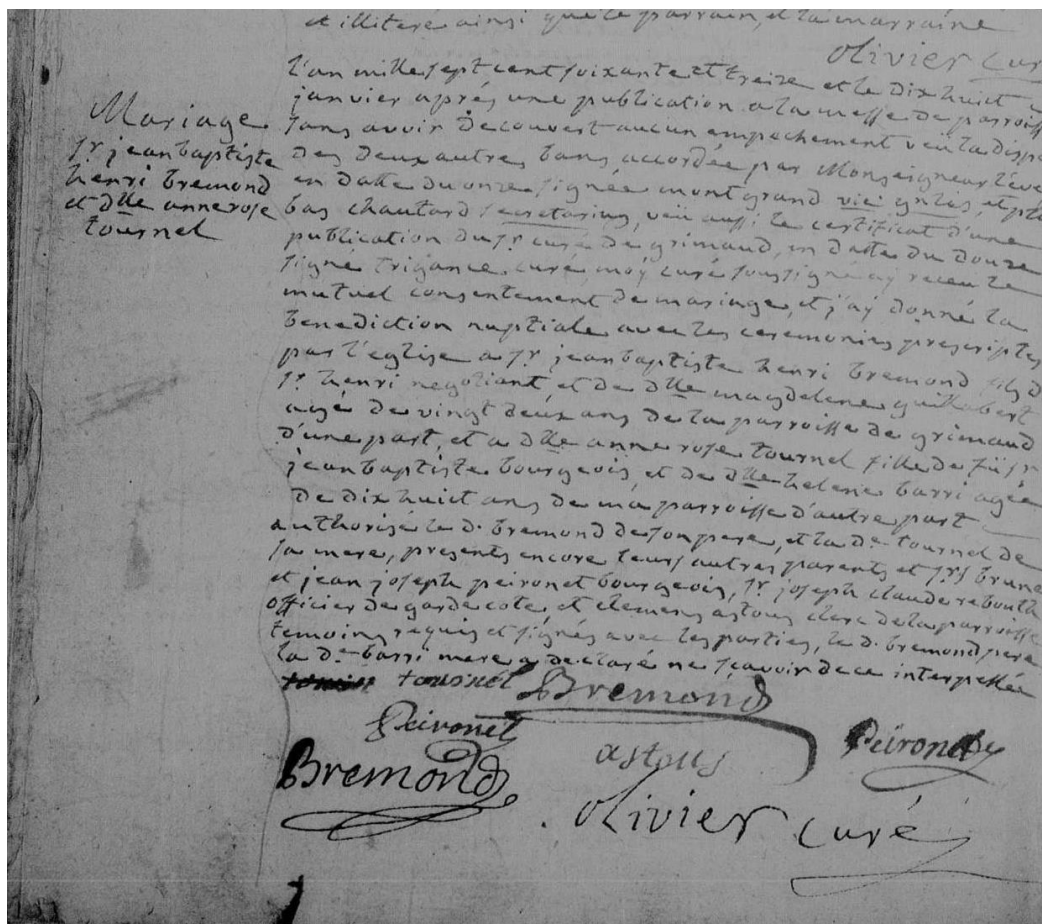 et illiteré ainsi que le parrain, et la marraine
olivier cur
Mariage
Sr. jean baptiste
henri bremond
et dlle anne rose
tournel
L'an mille sept cent soixante et treize et le dix huit
janvier aprés une publication a la messe de parroisse
sans avoir decouvert aucun empechement veu la dispe
des deux autre bans accordée par Monseigneur l'éve
en datte du onze signée montgrand vic gnles, et plu
bas chautard secretarius, veü aussi le certificat d'une
publication du sr curé de grimaud, en datte du douze
signé trigance curé, moÿ curé soussigné aÿ receu le
mutuel consentement de mariage, et j'aÿ donné la
benediction nuptiale avec les ceremonies prescriptes
par l'eglise a sr. jean baptiste henri bremond fils d
sr. henri negotiant et de dlle magdelene guillabert
agé de vingt deux ans de la parroisse de grimaud
d'une part, et a dlle anne rose tournel fille de fü sr
jean baptiste bourgeois, et de dlle helene barri agée
de dix huit ans de ma parroisse d'autre part
authorisé le d. bremond de son pere, et la de. tournel de
sa mere, presents encore leurs autres parents et srs brune
et jean joseph peironet bourgeois, sr. joseph claude rebouth
officier de garde cote, et clemens astous clerc de la parroisse
temoins requis et signés avec les parties, le d. bremond pere
la de. barri mere a declaré ne sçavoir de ce interpellée
tournel Bremond
Peironet
astous
Peironet
Bremond
olivier curé